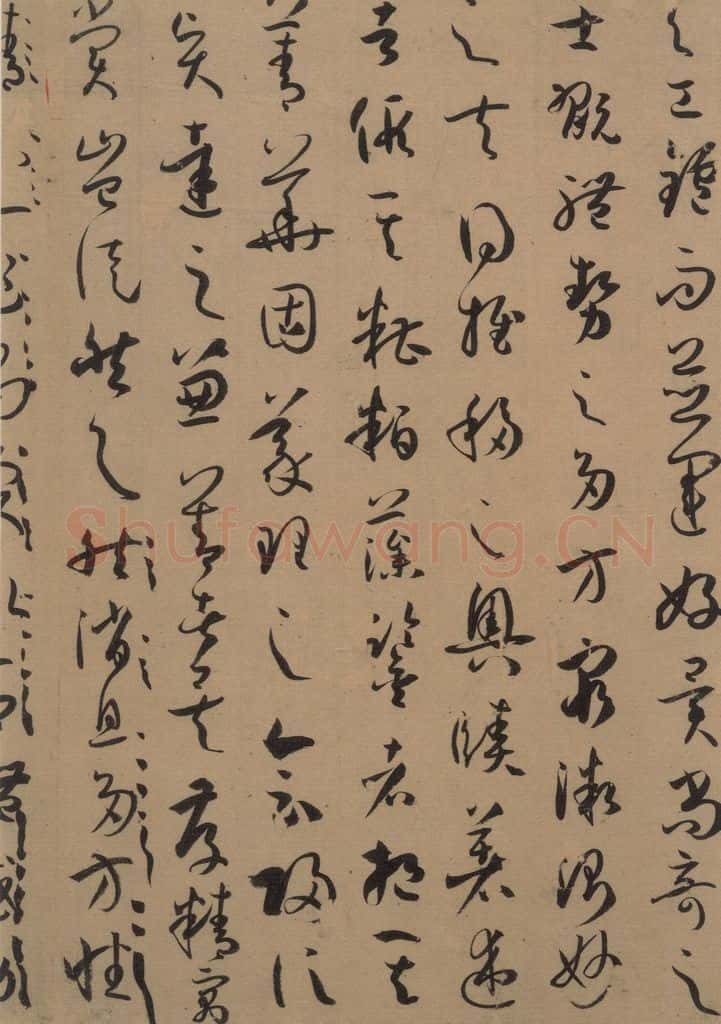 與工鑪而並運好異尚奇之
士翫體勢之多方窮微測妙
之夫得推移之奧賾著述
者假其糟粕藻鑒者挹其
菁華固義理之會歸信
賢達之兼善矣存精寓
賞豈徒然與然消息多方性
Shufawang.CN